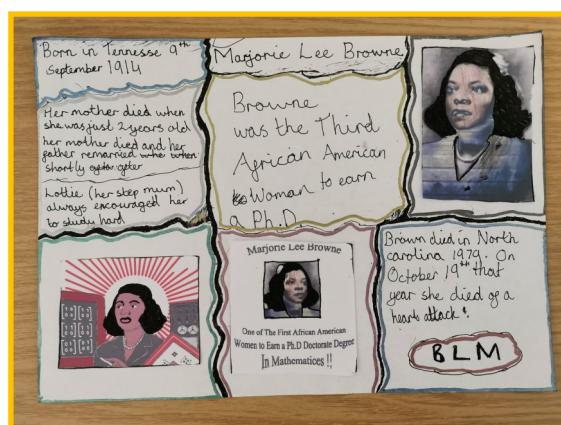 Born in Tennesse 9th
September 1914
Marjorie Lee Browne
Her mother died when
she was just 2 years old
her mother died and her
father remarried
shortly after
Lottie (her step mum)
always encouraged her
to study hard
Browne
was the Third
African American
Woman to earn
a Ph.D
Marjorie Lee Browne
One of The First African American
Women to Earn a Ph.D Doctorate Degree
In Mathematices !!
Brown died in North
carolina 1979. On
October 19th that
year she died of a
heart attack!
BLM